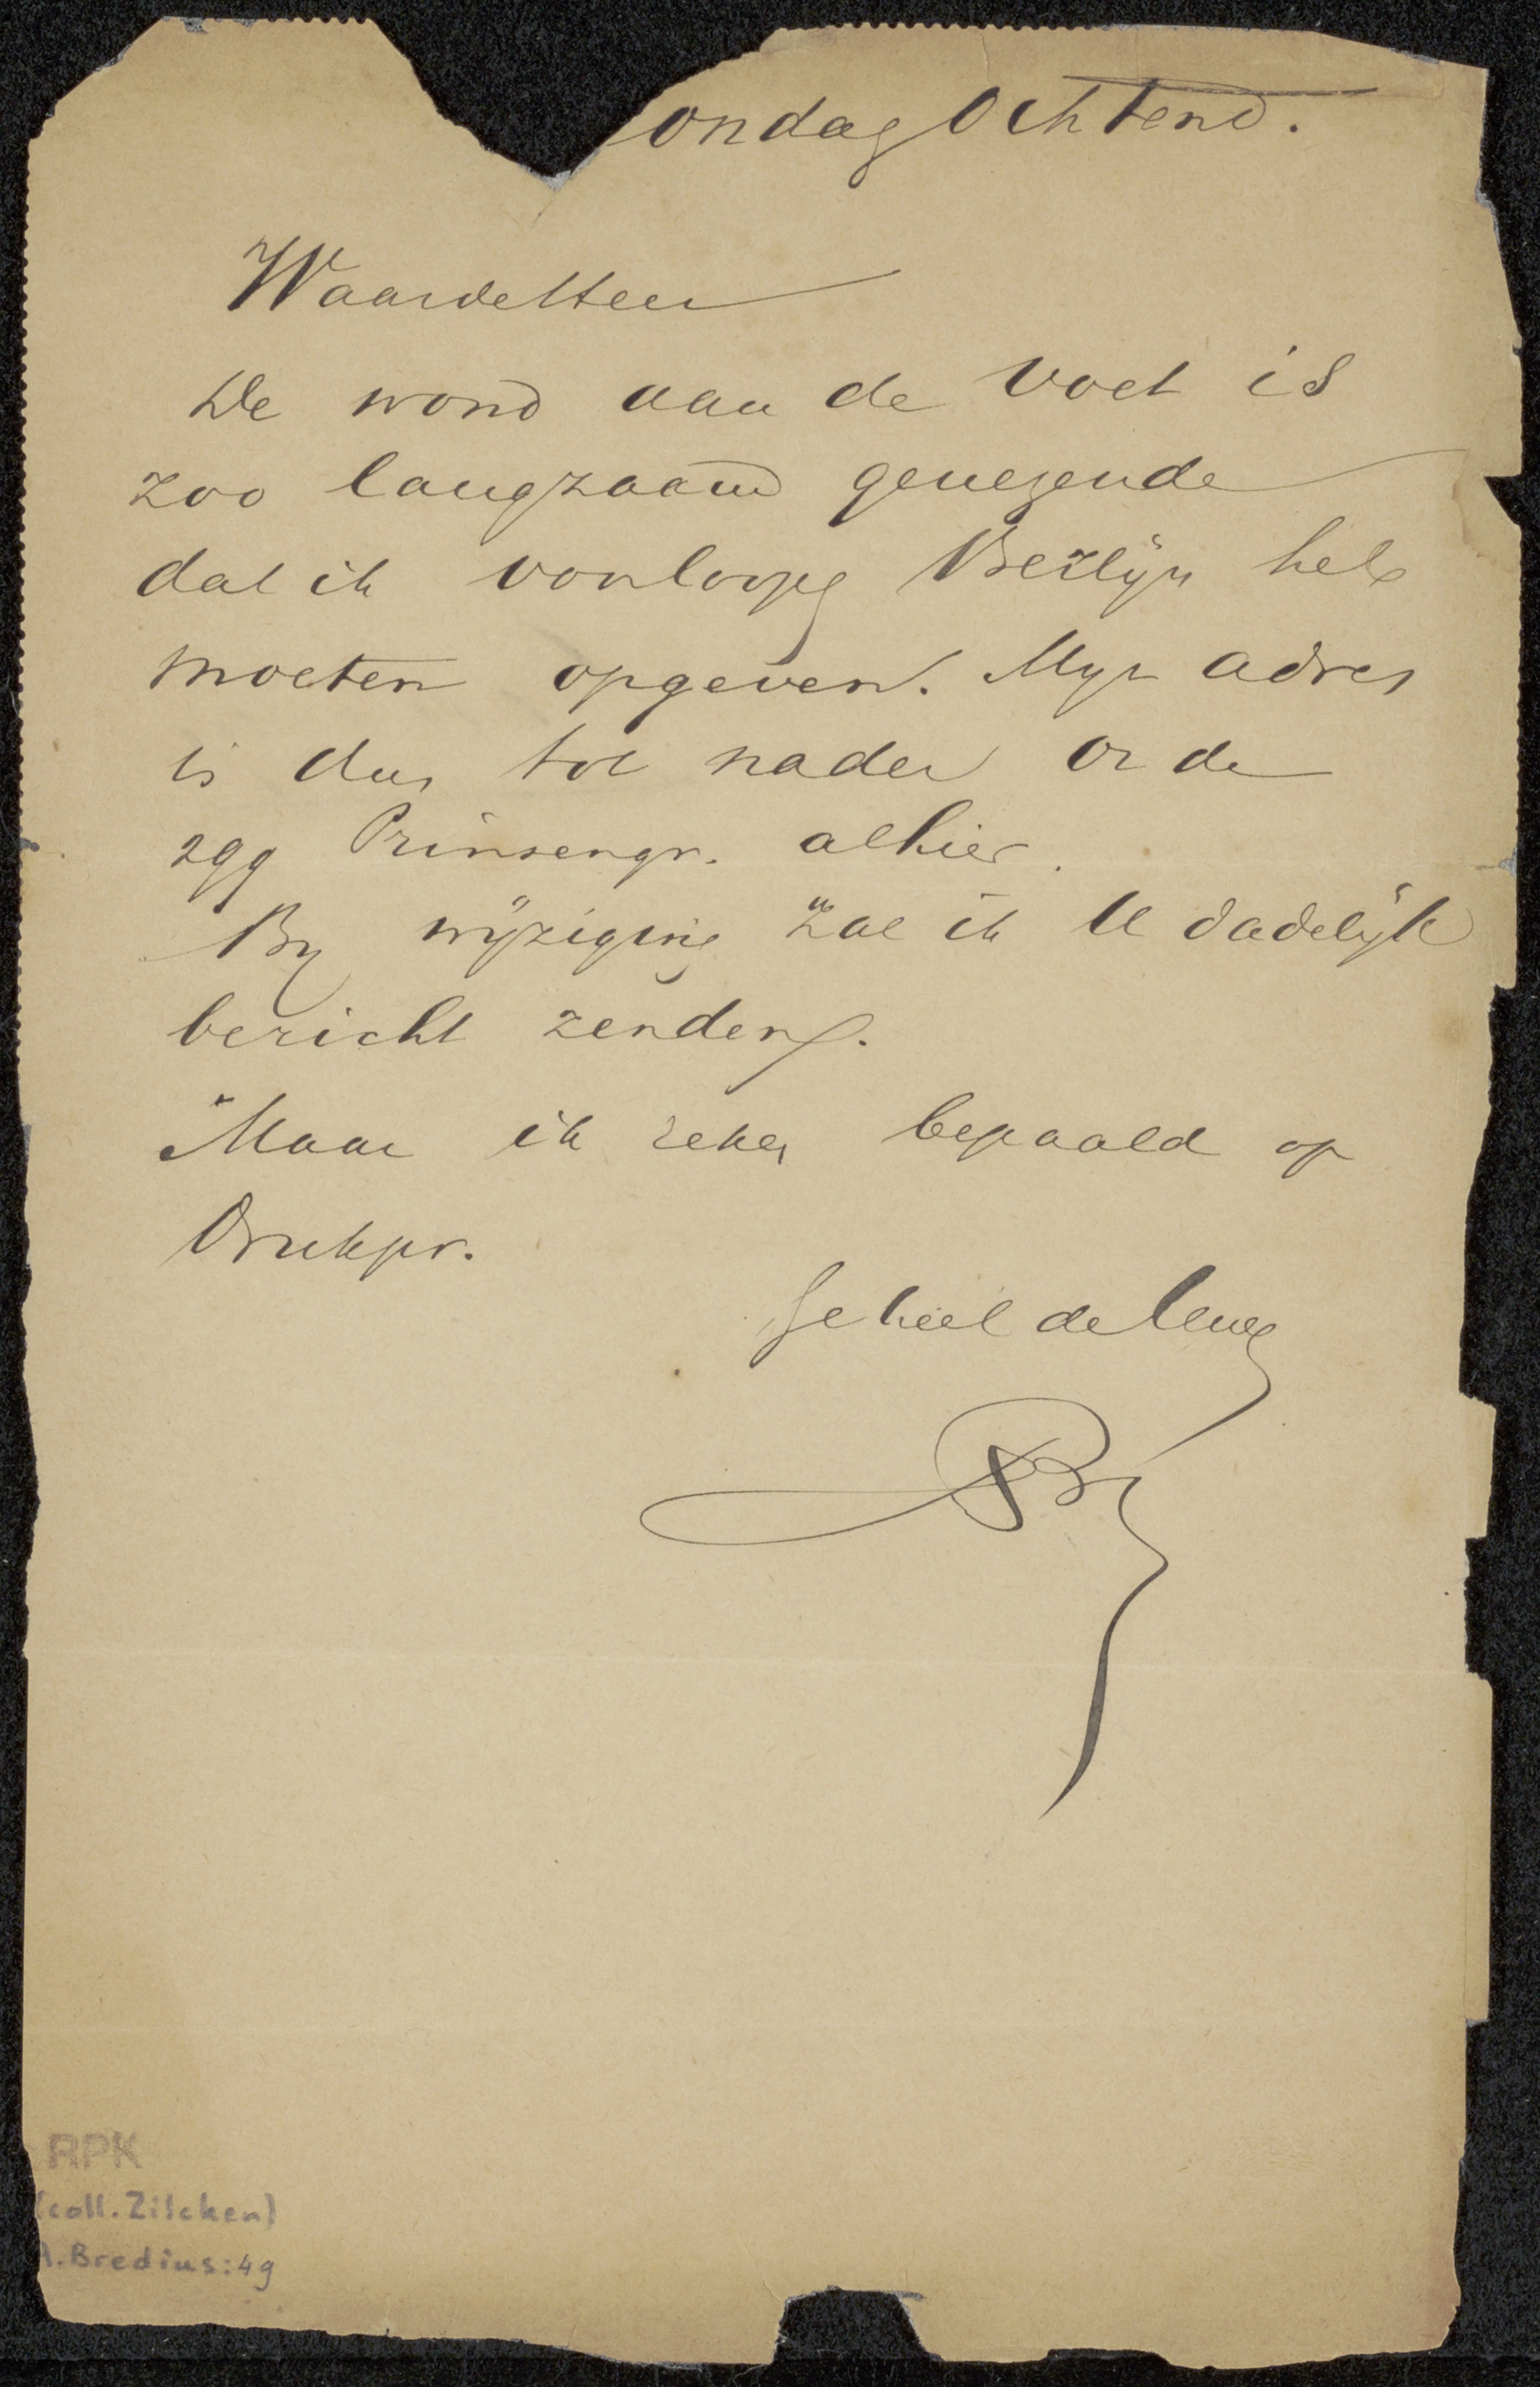 ondag Ochtend.
Waarde Heer
De wond aan de voet is
zoo langzaam genezende
dat ik voorloopig Berlijn heb
moeten opgeven. Mijn adres
is dus tot nader orde
299 Prinsengr. alhier.
Bij wijziging zal ik U dadelijk
bericht zenden.
Maar ik reken bepaald op
Drukpr.
Geheel de Uwe
AB
RPK
(coll. Zilcken)
A. Bredius: 49